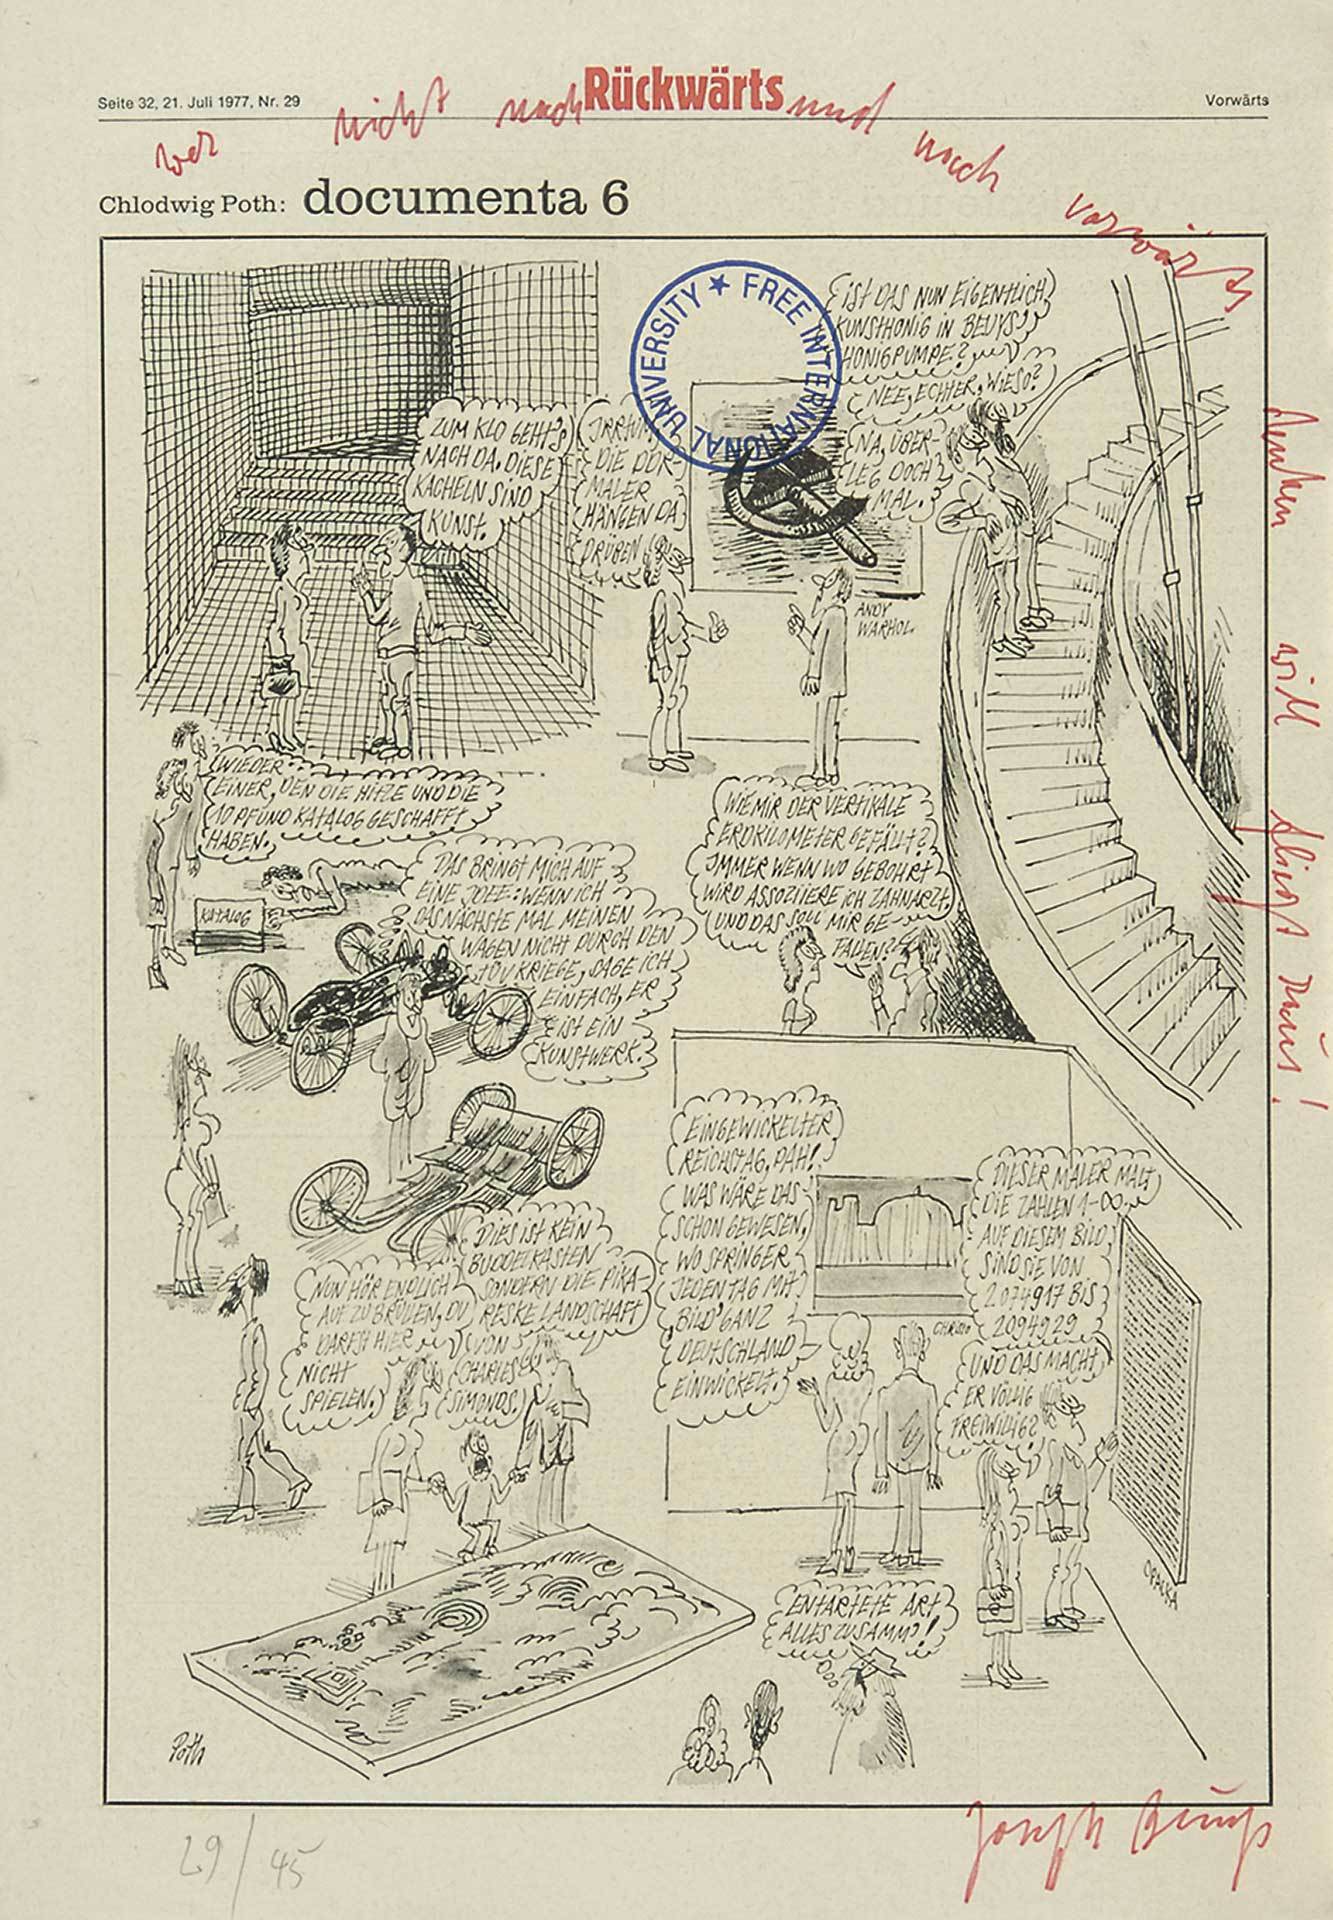 Seite 32, 21. Juli 1977, Nr. 29
Rückwärts
Vorwärts
wer nicht nach und nach vorwärts
Denken will fliegt raus!
Chlodwig Poth: documenta 6
FREE INTERNATIONAL UNIVERSITY ★
IST DAS NUN EIGENTLICH
KUNSTHONIG IN BEUYS'
HONIGPUMPE?
NEE, ECHTER, WIESO?
NA, ÜBER-
LEG DOCH
MAL.
ZUM KLO GEHT'S
NACH DA. DIESE
KACHELN SIND
KUNST.
IRRTUM,
DIE DDR-
MALER
HÄNGEN DA
DRÜBEN
ANDY
WARHOL
WIEDER
EINER, DEN DIE HITZE UND DIE
10 PFUND KATALOG GESCHAFFT
HABEN.
KATALOG
DAS BRINGT MICH AUF
EINE IDEE: WENN ICH
DAS NÄCHSTE MAL MEINEN
WAGEN NICHT DURCH DEN
TÜV KRIEGE, SAGE ICH
EINFACH, ER
IST EIN
KUNSTWERK.
WIE MIR DER VERTIKALE
ERDKILOMETER GEFÄLLT?
IMMER WENN WO GEBOHRT
WIRD ASSOZIIERE ICH ZAHNARZT
UND DAS SOLL MIR GE-
FALLEN?
EINGEWICKELTER
REICHSTAG, PAH!
WAS WÄRE DAS
SCHON GEWESEN,
WO SPRINGER
JEDEN TAG MIT
BILD' GANZ
DEUTSCHLAND
EINWICKELT.
CHRISTO
DIESER MALER MALT
DIE ZAHLEN 1-∞.
AUF DIESEM BILD
SIND SIE VON
2074917 BIS
2094929
UND DAS MACHT
ER VÖLLIG
FREIWILLIG?
OPALKA
NUN HÖR ENDLICH
AUF ZU BRÜLLEN, DU
DARFST HIER
NICHT
SPIELEN.
DIES IST KEIN
BUDDELKASTEN
SONDERN DIE PIKA-
RESKE LANDSCHAFT
VON
CHARLES
SIMONDS.
ENTARTETE ART
ALLES ZUSAMM'!
Poth
29/45
Joseph Beuys